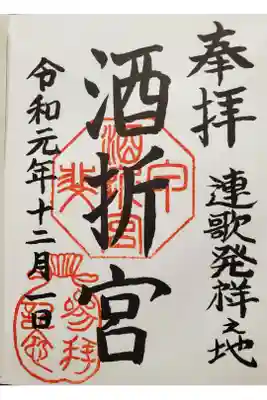 奉拝
連歌発祥之地
酒折宮
令和元年十二月一日